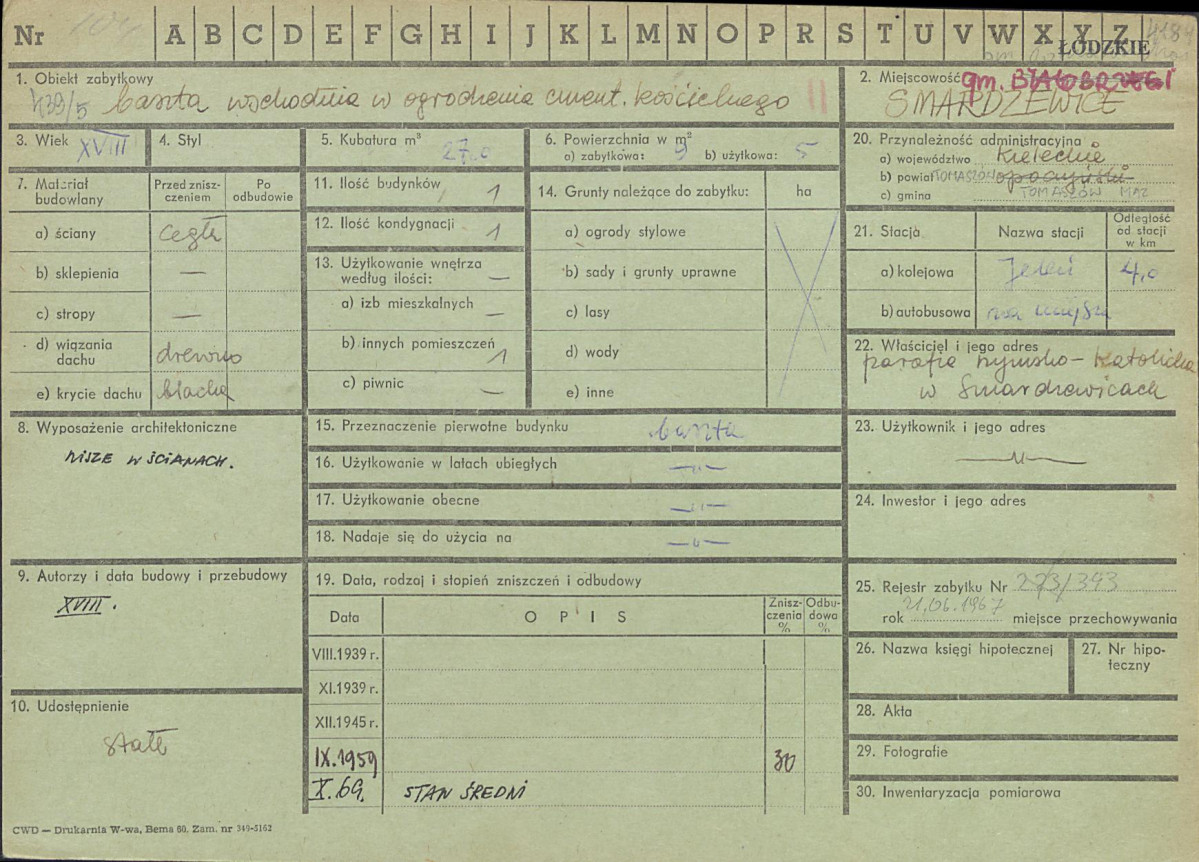 Nr A B C D E F G H I J K L M N O P R S T U V W X Y Z
ŁÓDZKIE
1. Obiekt zabytkowy
439/5 baszta wschodnia w ogrodzenia cment. kościelnego II
2. Miejscowość gm. BIAŁOBRZEGI
SMARDZEWICE
3. Wiek XVIII
4. Styl
5. Kubatura m³ 27,0
6. Powierzchnia w m²
a) zabytkowa: 9 b) użytkowa: 5
20. Przynależność administracyjna
a) województwo Kieleckie
b) powiat TOMASZÓW opoczyński
c) gmina TOMASZÓW MAZ
7. Materiał budowlany
Przed zniszczeniem
Po odbudowie
a) ściany cegła
b) sklepienia —
c) stropy —
d) wiązania dachu drewno
e) krycie dachu blacha
11. Ilość budynków 1
12. Ilość kondygnacji 1
13. Użytkowanie wnętrza
według ilości: —
a) izb mieszkalnych —
b) innych pomieszczeń 1
c) piwnic —
14. Grunty należące do zabytku: ha
a) ogrody stylowe
b) sady i grunty uprawne
c) lasy
d) wody
e) inne
21. Stacja Nazwa stacji
Odległość
od stacji
w km
a) kolejowa Jeleń 4,0
b) autobusowa na miejscu
22. Właściciel i jego adres
parafia rzymsko-katolicka
w Smardzewicach
8. Wyposażenie architektoniczne
NISZE W ŚCIANACH.
15. Przeznaczenie pierwotne budynku baszta
16. Użytkowanie w latach ubiegłych —"—
17. Użytkowanie obecne —"—
18. Nadaje się do użycia na —"—
23. Użytkownik i jego adres
—"—
24. Inwestor i jego adres
9. Autorzy i data budowy i przebudowy
XVIII.
19. Data, rodzaj i stopień zniszczeń i odbudowy
Data
O P I S
Zniszczenia %
Odbudowa %
VIII.1939 r.
XI.1939 r.
XII.1945 r.
IX.1959 30
X.69. STAN ŚREDNI
25. Rejestr zabytku Nr 273/343
rok 21.06.1967 miejsce przechowywania
26. Nazwa księgi hipotecznej
27. Nr hipoteczny
10. Udostępnienie
stałe
28. Akta
29. Fotografie
30. Inwentaryzacja pomiarowa
CWD — Drukarnia W-wa, Bema 60. Zam. nr 349-5162